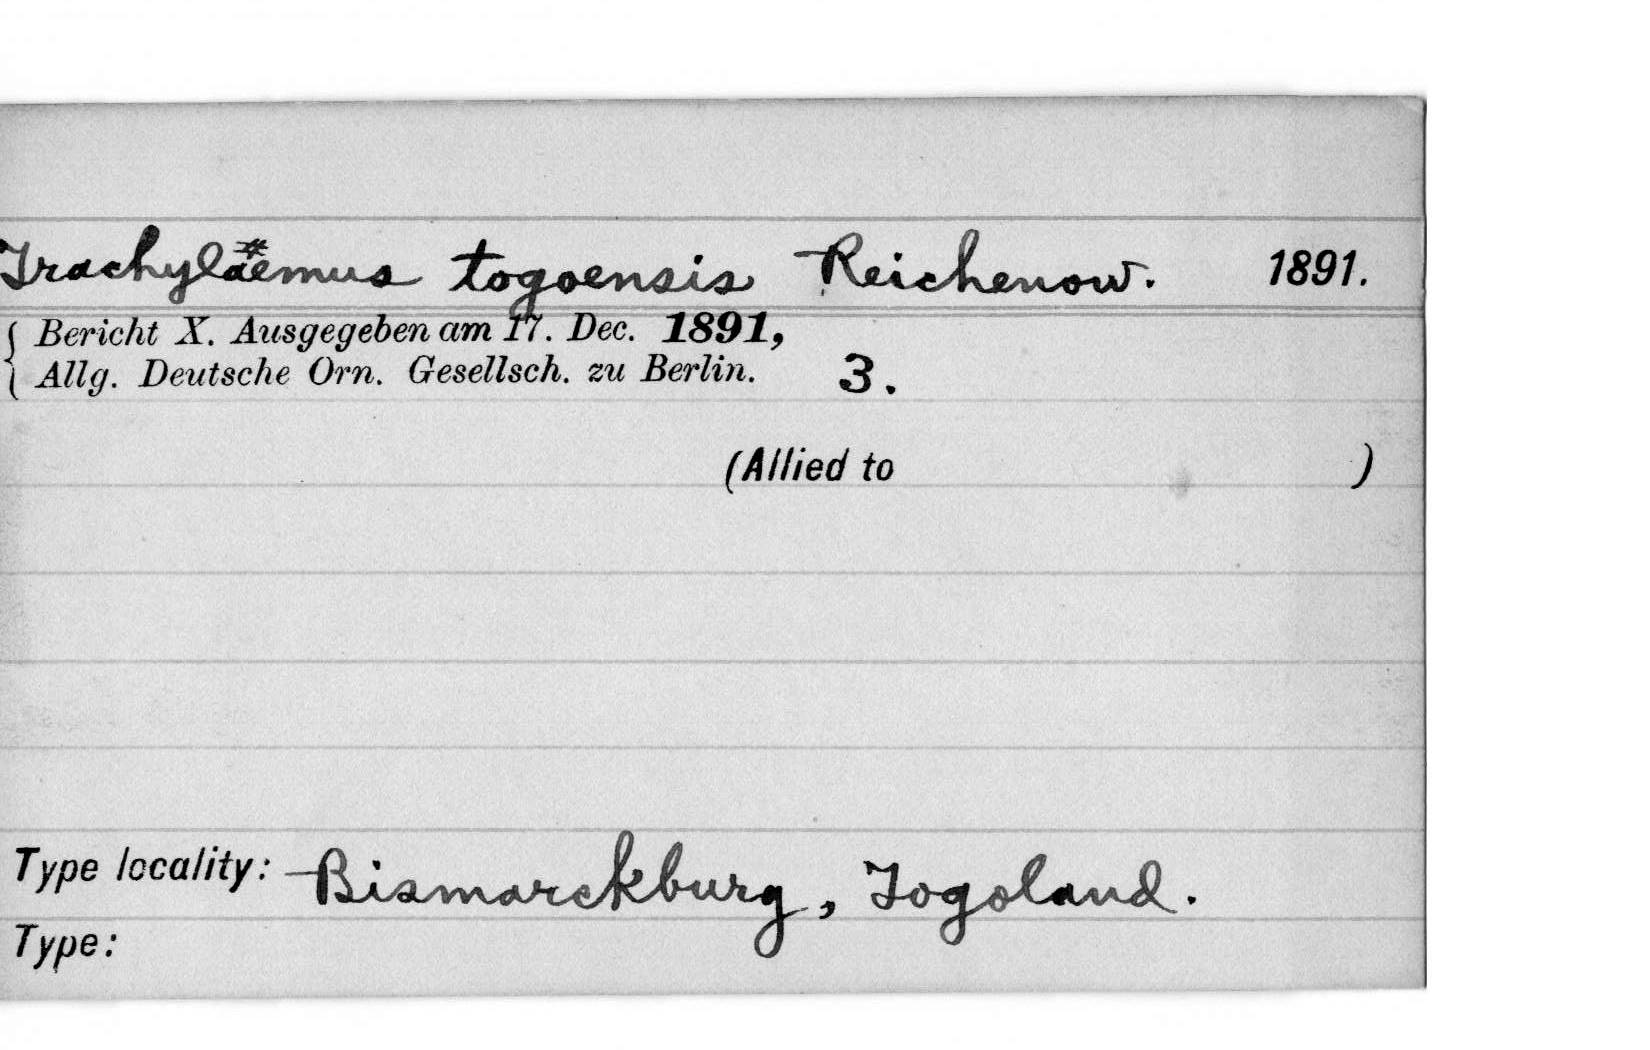 Trachylaemus togoensis Reichenow. 1891.
Bericht X. Ausgegeben am 17. Dec. 1891,
Allg. Deutsche Orn. Gesellsch. zu Berlin. 3.
(Allied to )
Type locality: Bismarckburg, Togoland.
Type: